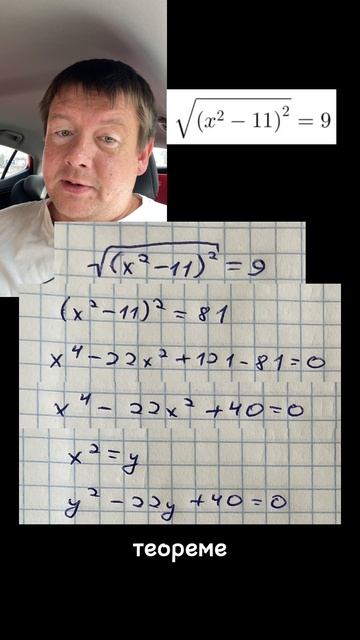 √(x² − 11)² = 9
√(x² − 11)² = 9
(x² − 11)² = 81
x⁴ − 22x² + 121 − 81 = 0
x⁴ − 22x² + 40 = 0
x² = y
y² − 22y + 40 = 0
теореме